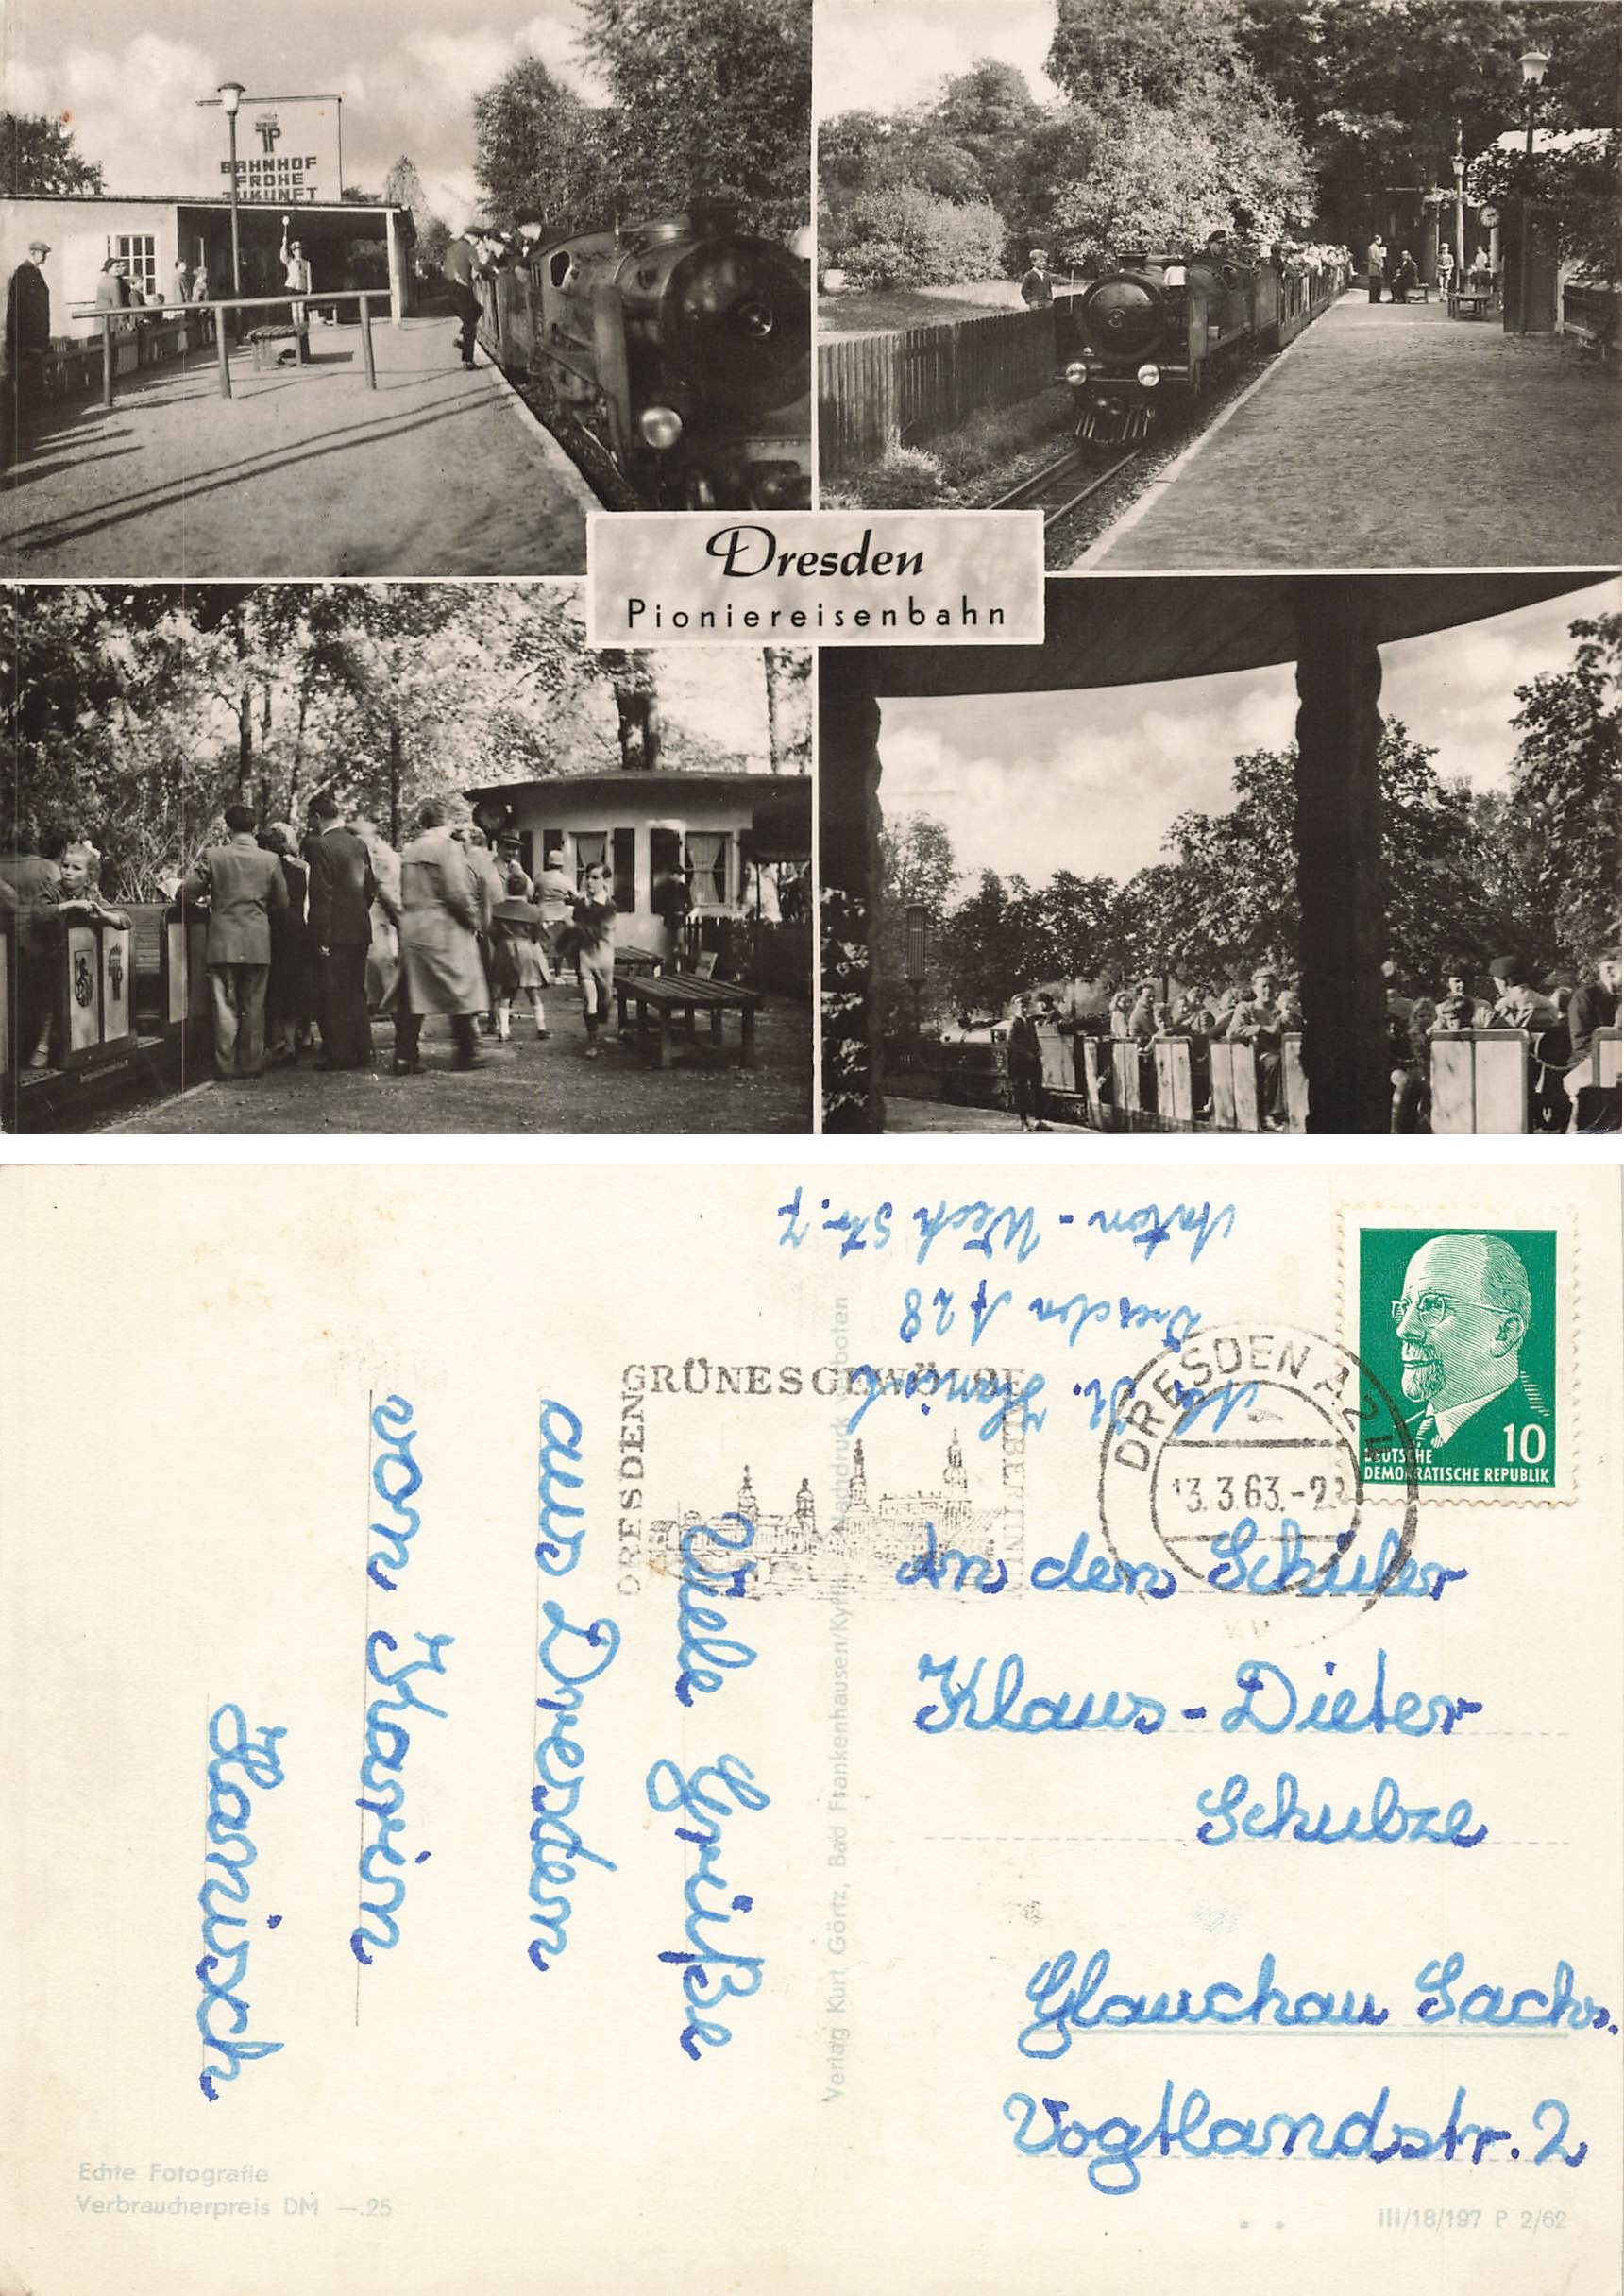 BAHNHOF
FROHE
ZUKUNFT
Dresden
Pioniereisenbahn
Anton - Weck Str. 7
Dresden A 28
Hanisch
GRÜNES GEWÖLBE
DRESDEN
ALBERTINUM
DRESDEN A 2
13.3.63.-2
10
DEUTSCHE
DEMOKRATISCHE REPUBLIK
Viele Grüße
aus Dresden
von Karin
Hanisch
Verlag Kurt Görtz, Bad Frankenhausen/Kyffh. Nachdruck verboten
An den Schüler
Klaus-Dieter
Schulze
Glauchau Sachs.
Vogtlandstr. 2
Echte Fotografie
Verbraucherpreis DM —.25
III/18/197 P 2/62